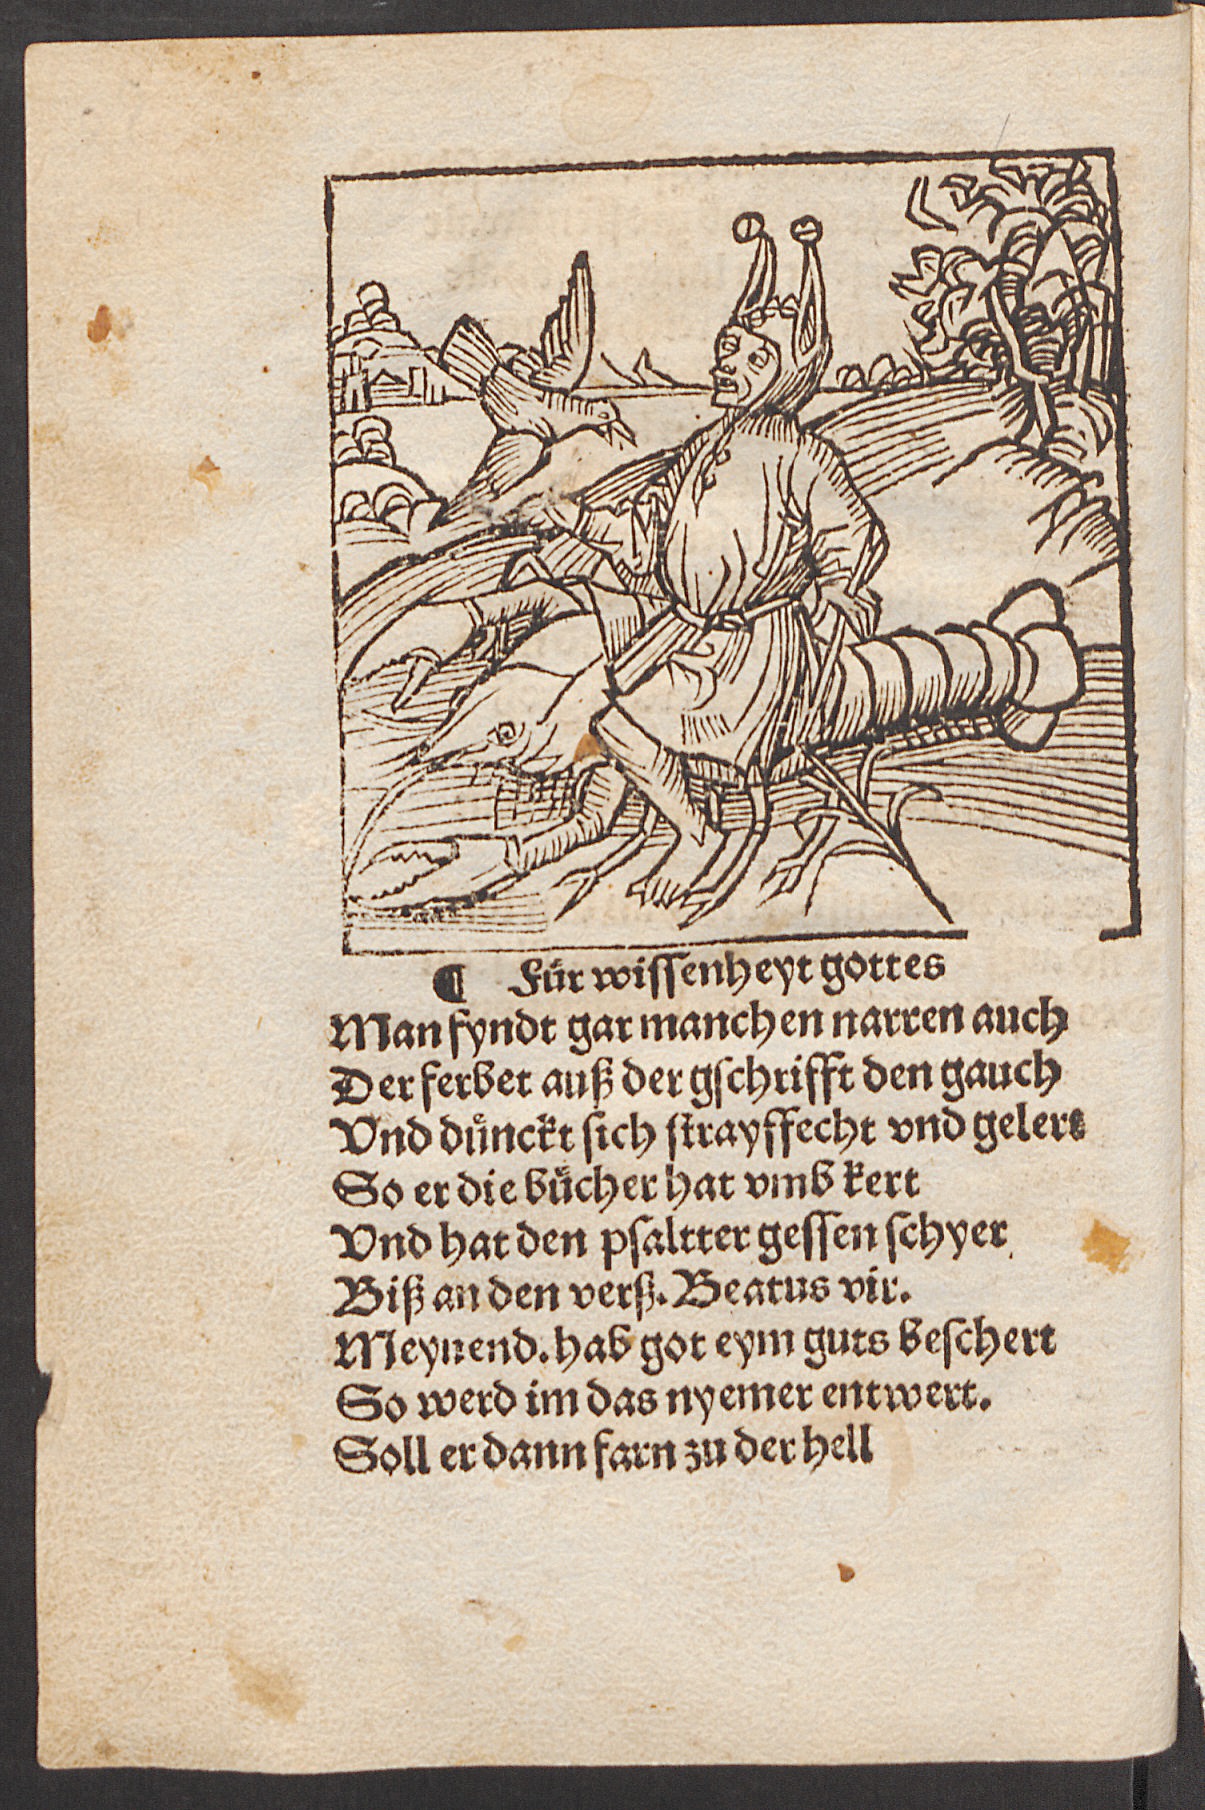 ¶ Fuͤr wissenheyt gottes
Man fyndt gar manchen narren auch
Der ferbet auß der gschrifft den gauch
Vnd duͤnckt sich strayffecht vnd gelert
So er die buͤcher hat vmb kert
Vnd hat den psaltter gessen schyer
Biß an den verß. Beatus vir.
Meynend. hab got eym guts beschert
So werd im das nyemer entwert.
Soll er dann farn zu der hell